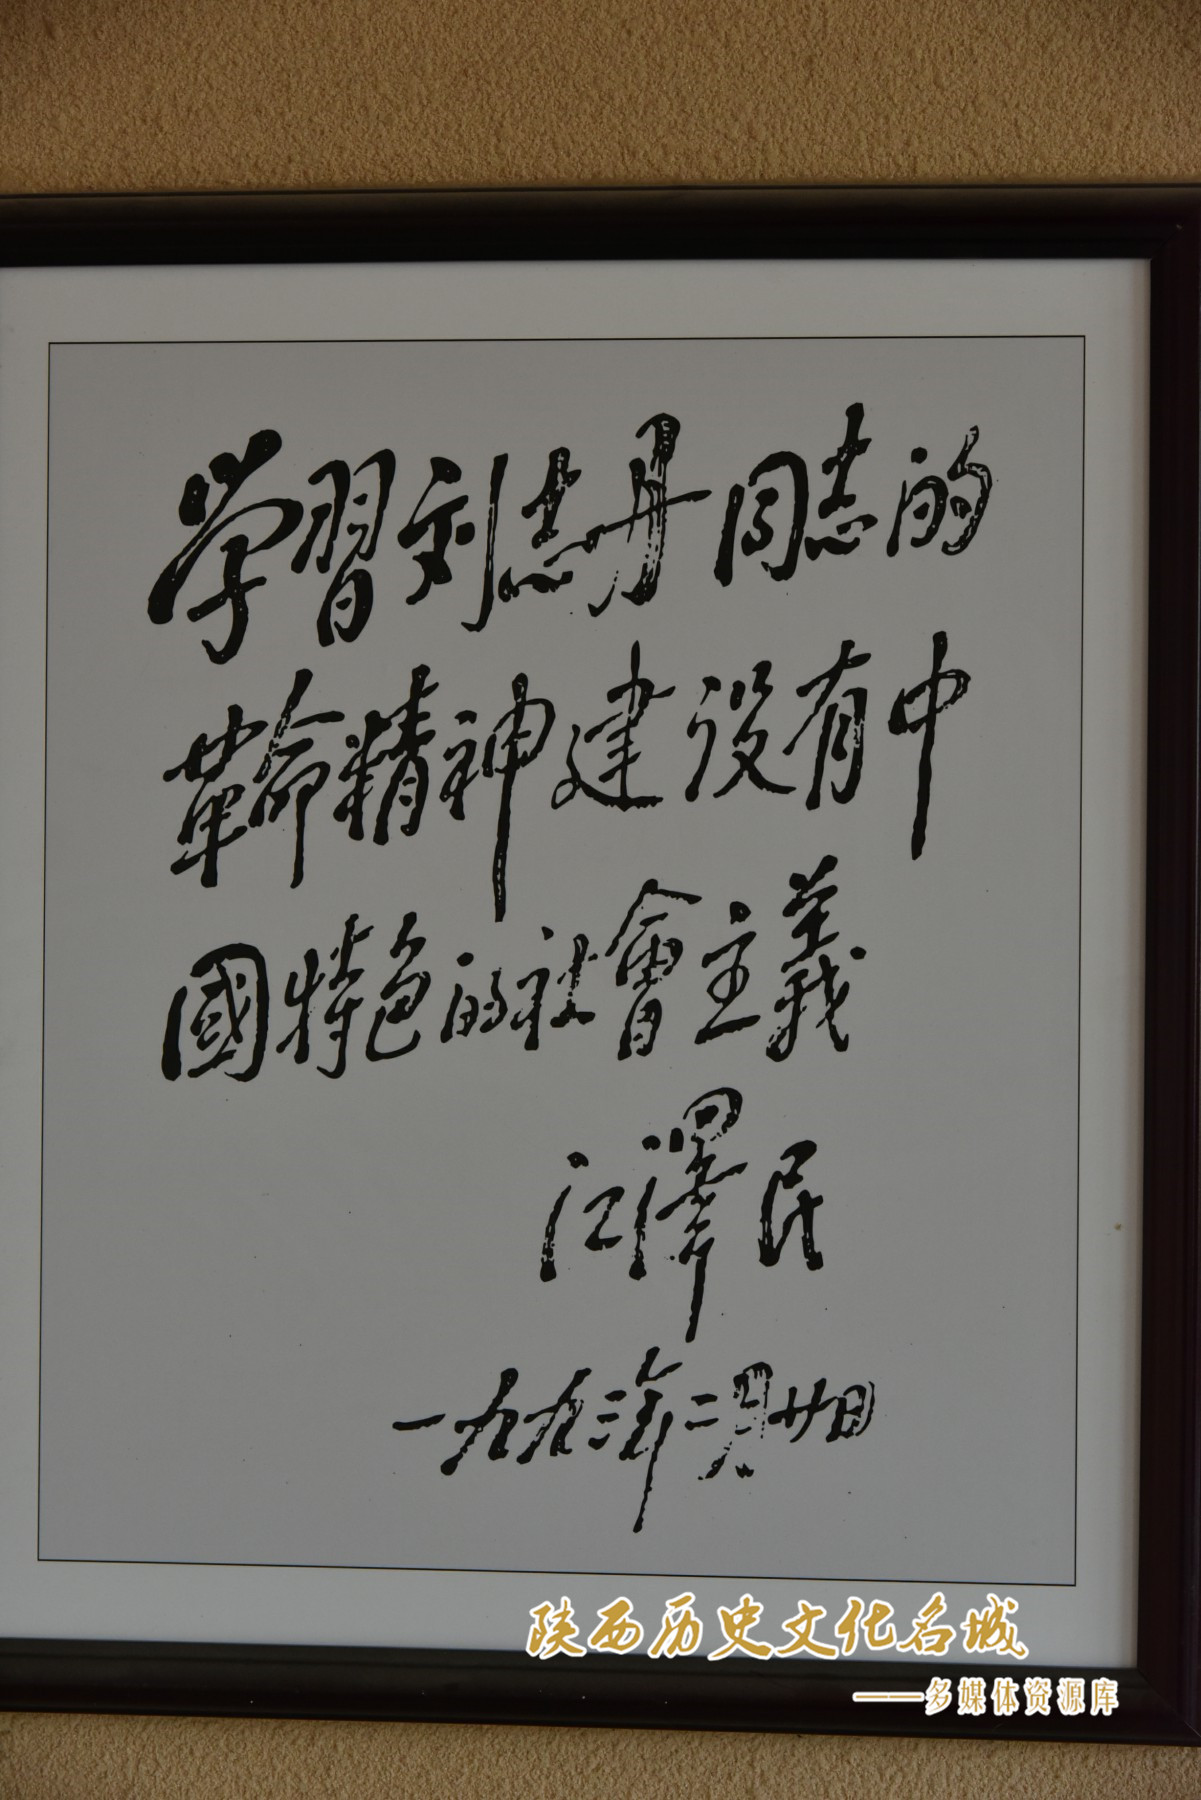 学習刘志丹同志的
革命精神建设有中
國特色的社會主義
江澤民
一九九三年二月廿日
陕西历史文化名城
——多媒体资源库